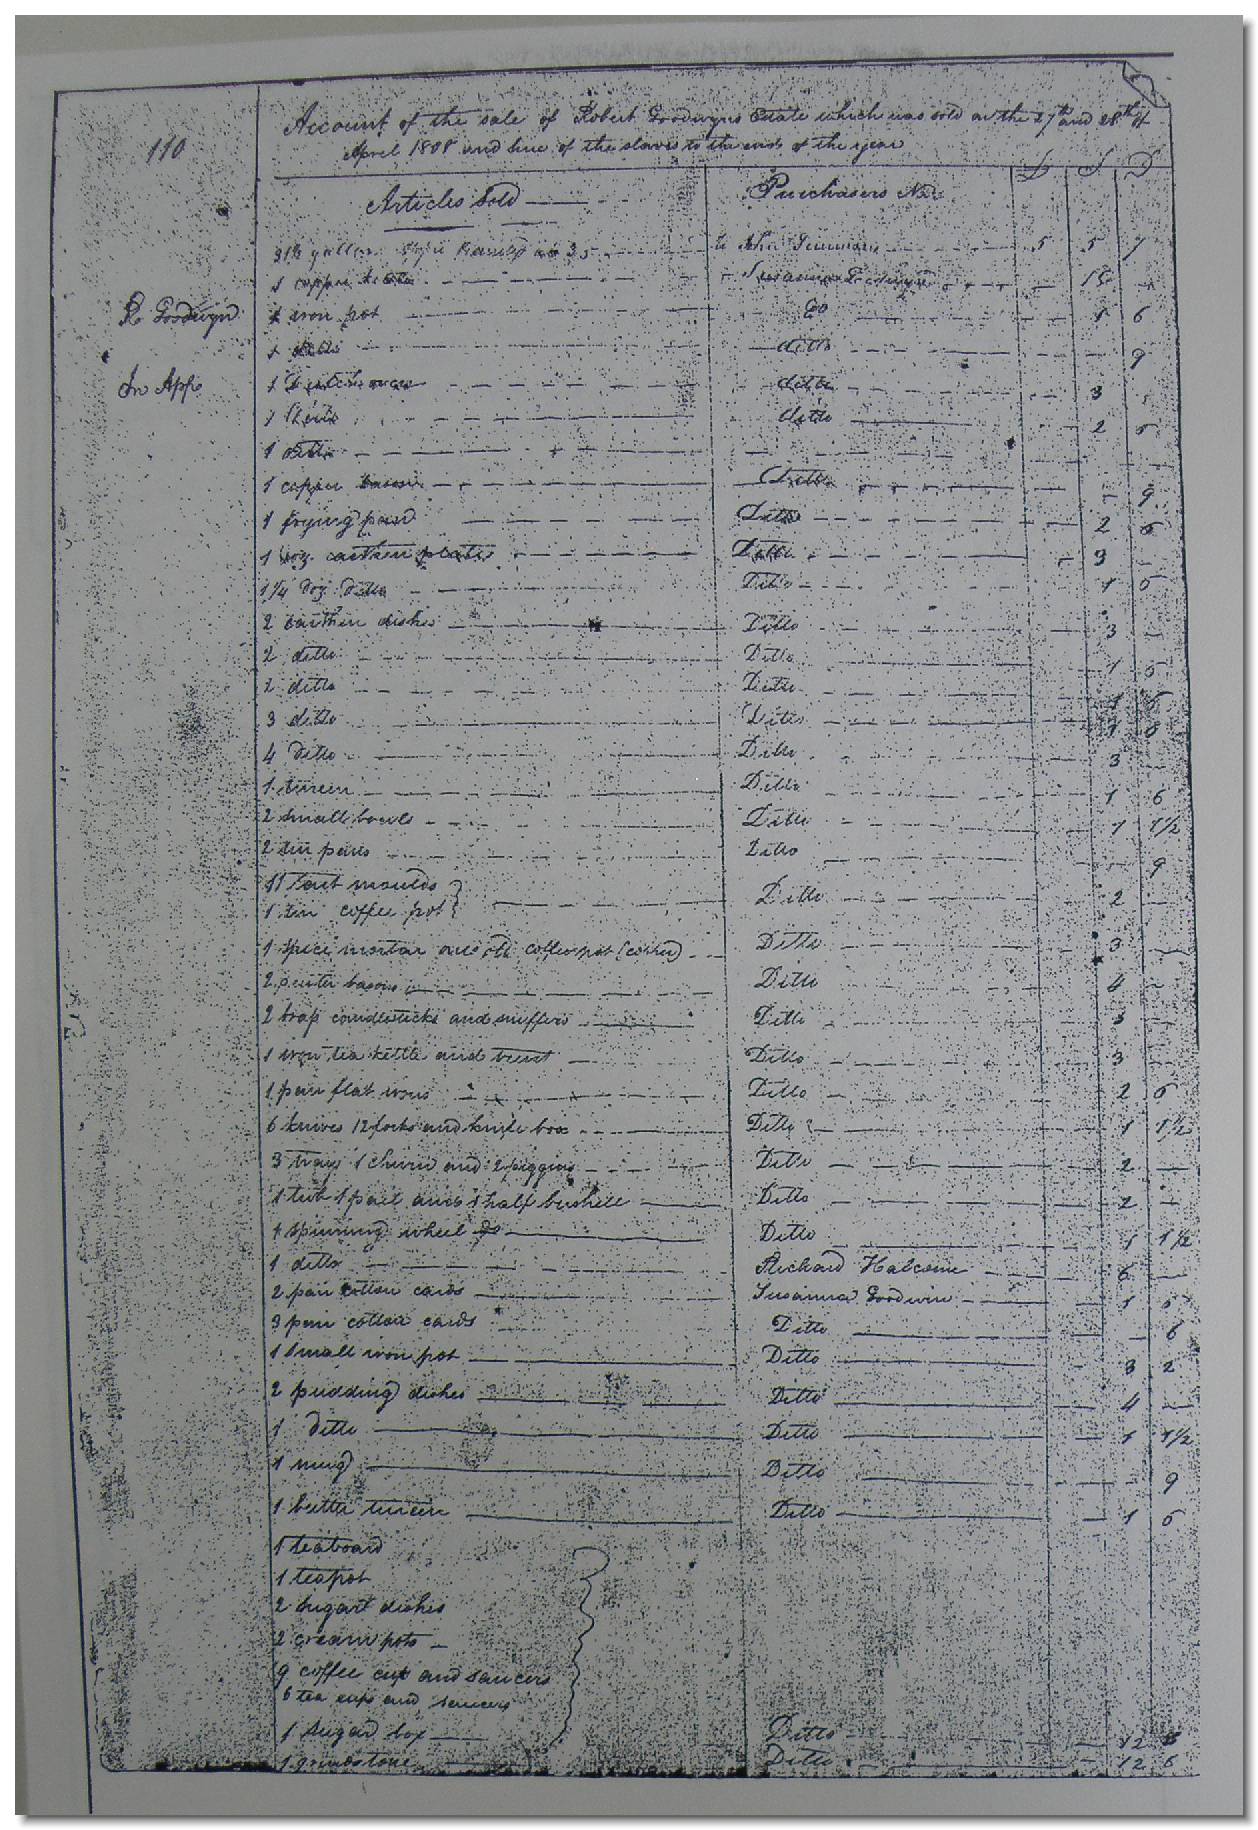 110
Account of the sale of Robert Goodwyns Estate which was sold on the 27th and 28th of
April 1808 and hire of the slaves to the end of the year
Articles Sold Purchasers N L S D
31½ gallon John 5 5 7
1 copper kettle Susanna Goodwyn 15
R Goodwyn
1 iron pot Do 1 6
1 ditto ditto 9
In Appe
1 ditto 3
1 ditto 2 6
1 ditto
1 copper bason Ditto 9
1 frying pan Ditto 2 6
1 doz. earthen plates Ditto 3
1¼ doz ditto Ditto 1 6
2 earthen dishes Ditto 3
2 ditto Ditto 1 6
2 ditto Ditto 1 6
3 ditto Ditto 1 6
4 Ditto Ditto 3
1 tureen Ditto 1 6
2 small bowls Ditto 1 1½
2 tin pans Ditto 9
11 moulds
1 tin coffee pot Ditto 2
1 spice mortar and old coffee pot Ditto 3
2 peuter basons Ditto 4
2 brass candlesticks and snuffers Ditto 3
1 iron tea kettle and trivet Ditto 3
1 pair flat irons Ditto 2 6
6 knives 12 forks and knife box Ditto 1 1½
3 trays 1 churn and 2 piggins Ditto 2
1 tub 1 pail and 1 half bushell Ditto 2
1 spinning wheel Ditto 1 1½
1 ditto Richard Halcome 6
2 pair cotton cards Susanna Goodwin 1 6
3 pair cotton cards Ditto 6
1 small iron pot Ditto 3 2
2 pudding dishes Ditto 4
1 ditto Ditto 1 1½
1 mug Ditto 9
1 tureen Ditto 1 6
1 teaboard
1 teapot
2 sugar dishes
2 cream pots
9 coffee cup and saucers
6 tea cups and saucers
1 sugar box Ditto 12
1 grindstone Ditto 12 6